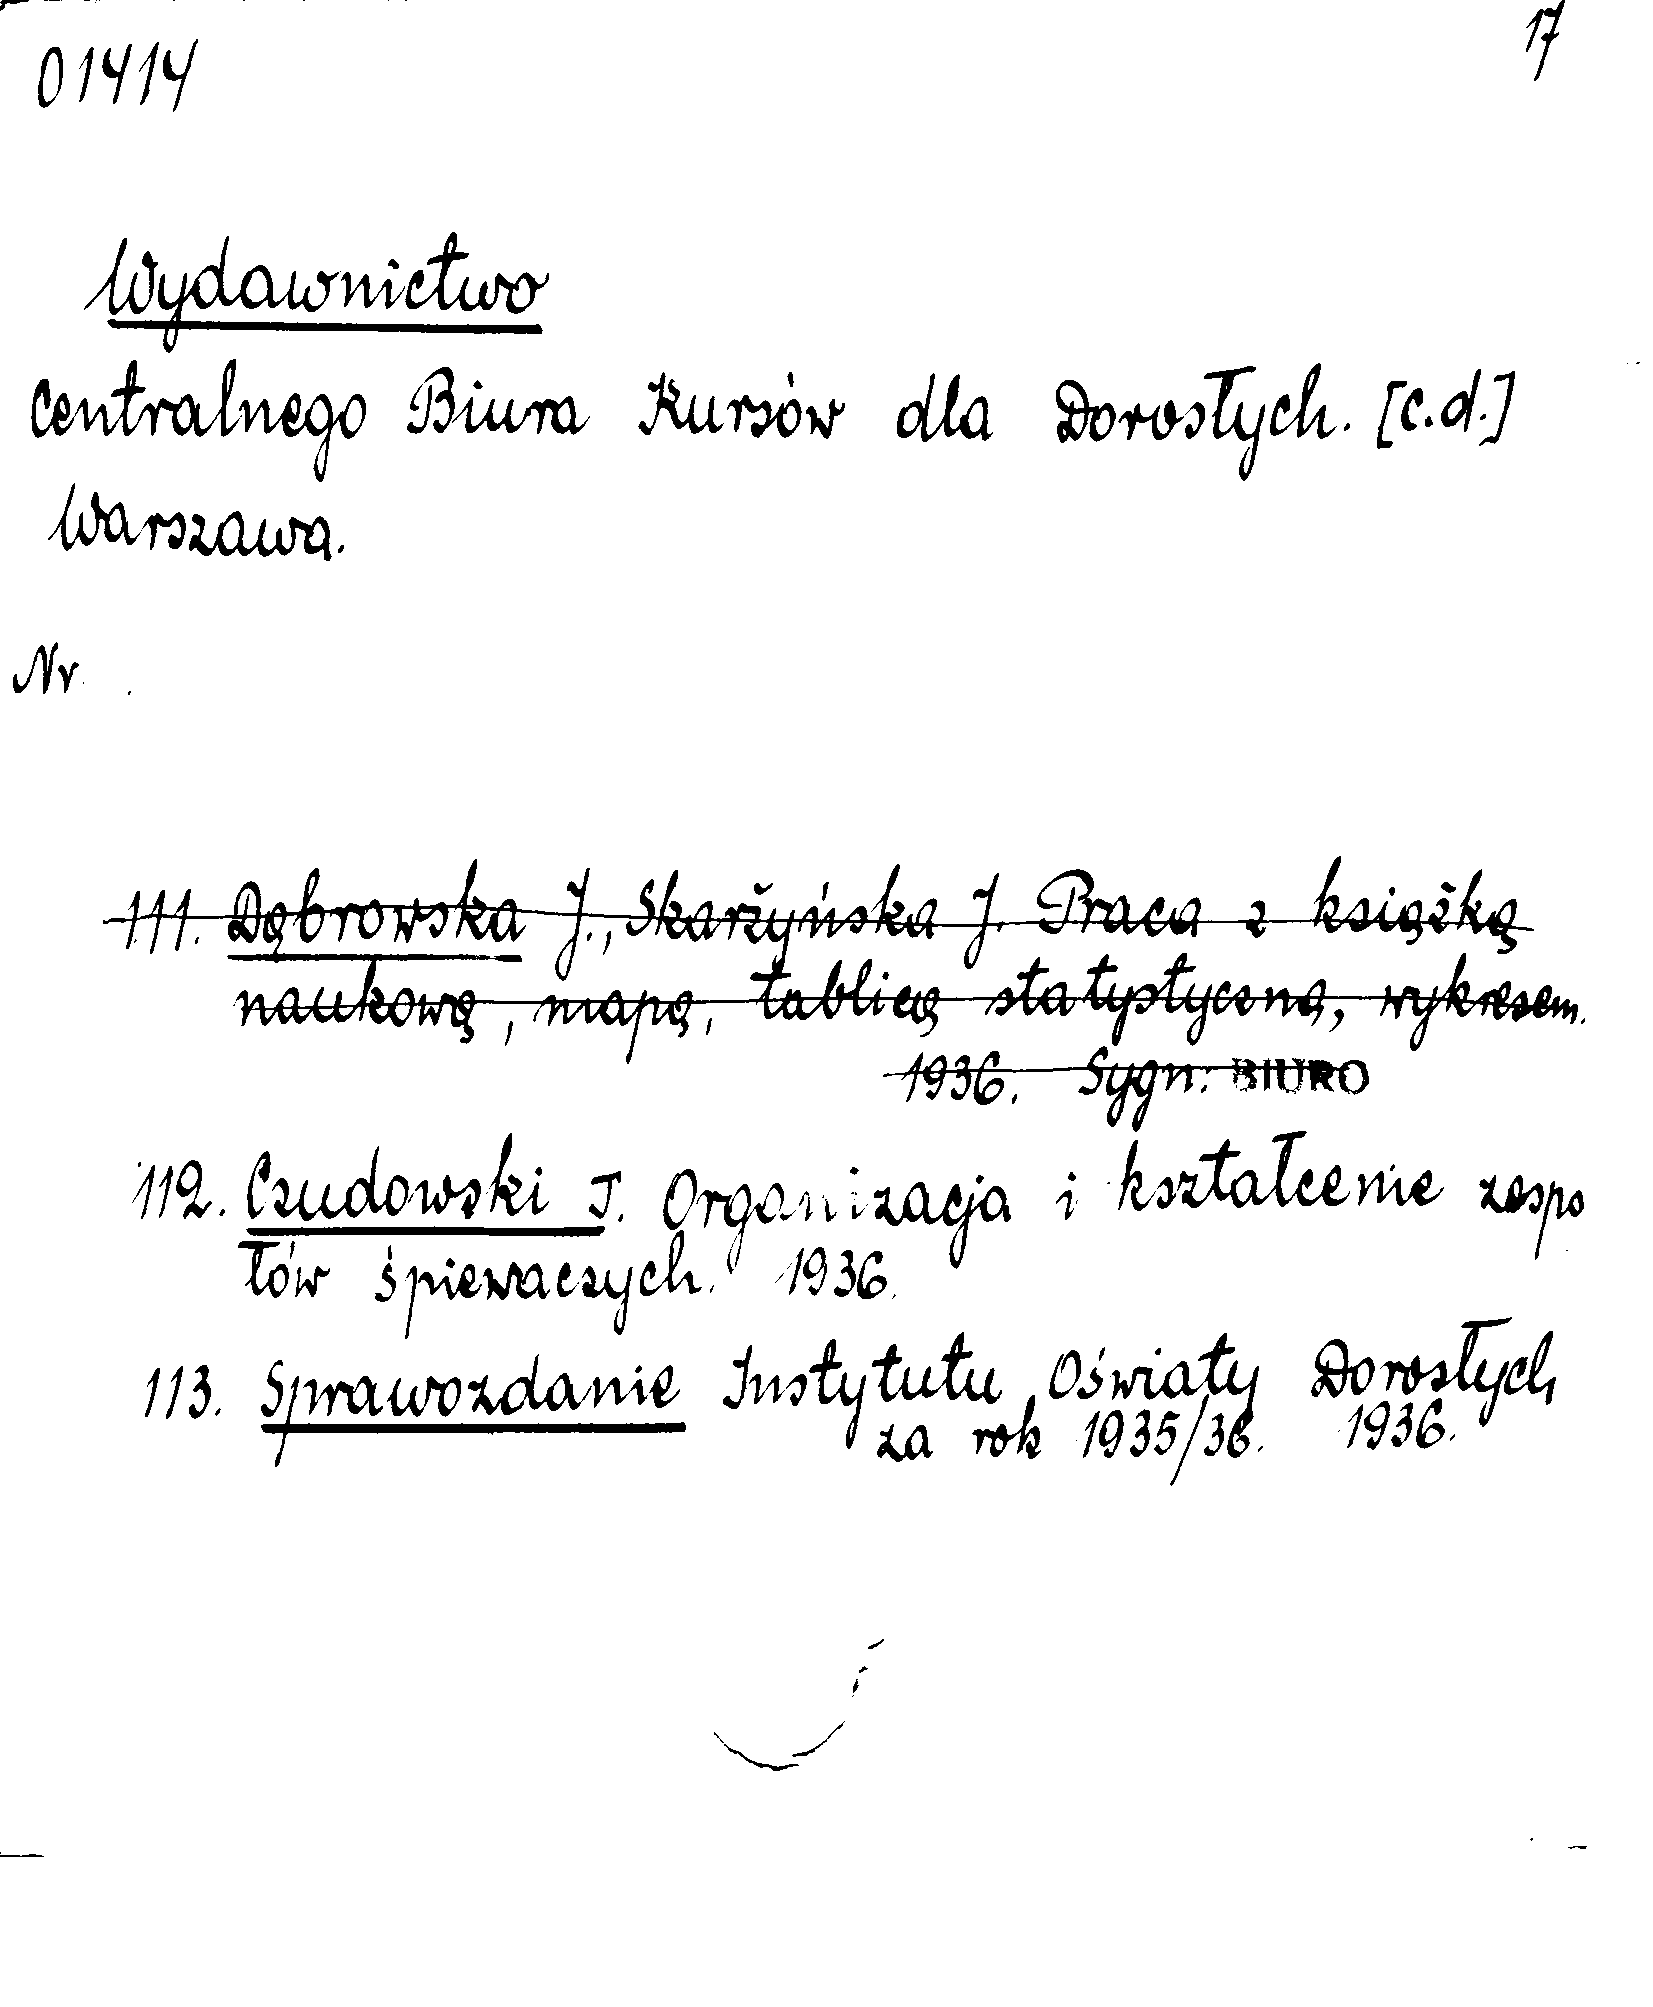 01414
17
Wydawnictwo
Centralnego Biura Kursów dla Dorosłych. [c.d.]
Warszawa.
Nr
111. Dąbrowska J., Skarżyńska J. Praca z książką
naukową, mapą, tablicą statystyczną, wykresem.
1936. Sygn: BIURO
112. Czudowski T. Organizacja i kształcenie zespo
łów śpiewaczych. 1936.
113. Sprawozdanie Instytutu Oświaty Dorosłych
za rok 1935/36. 1936.